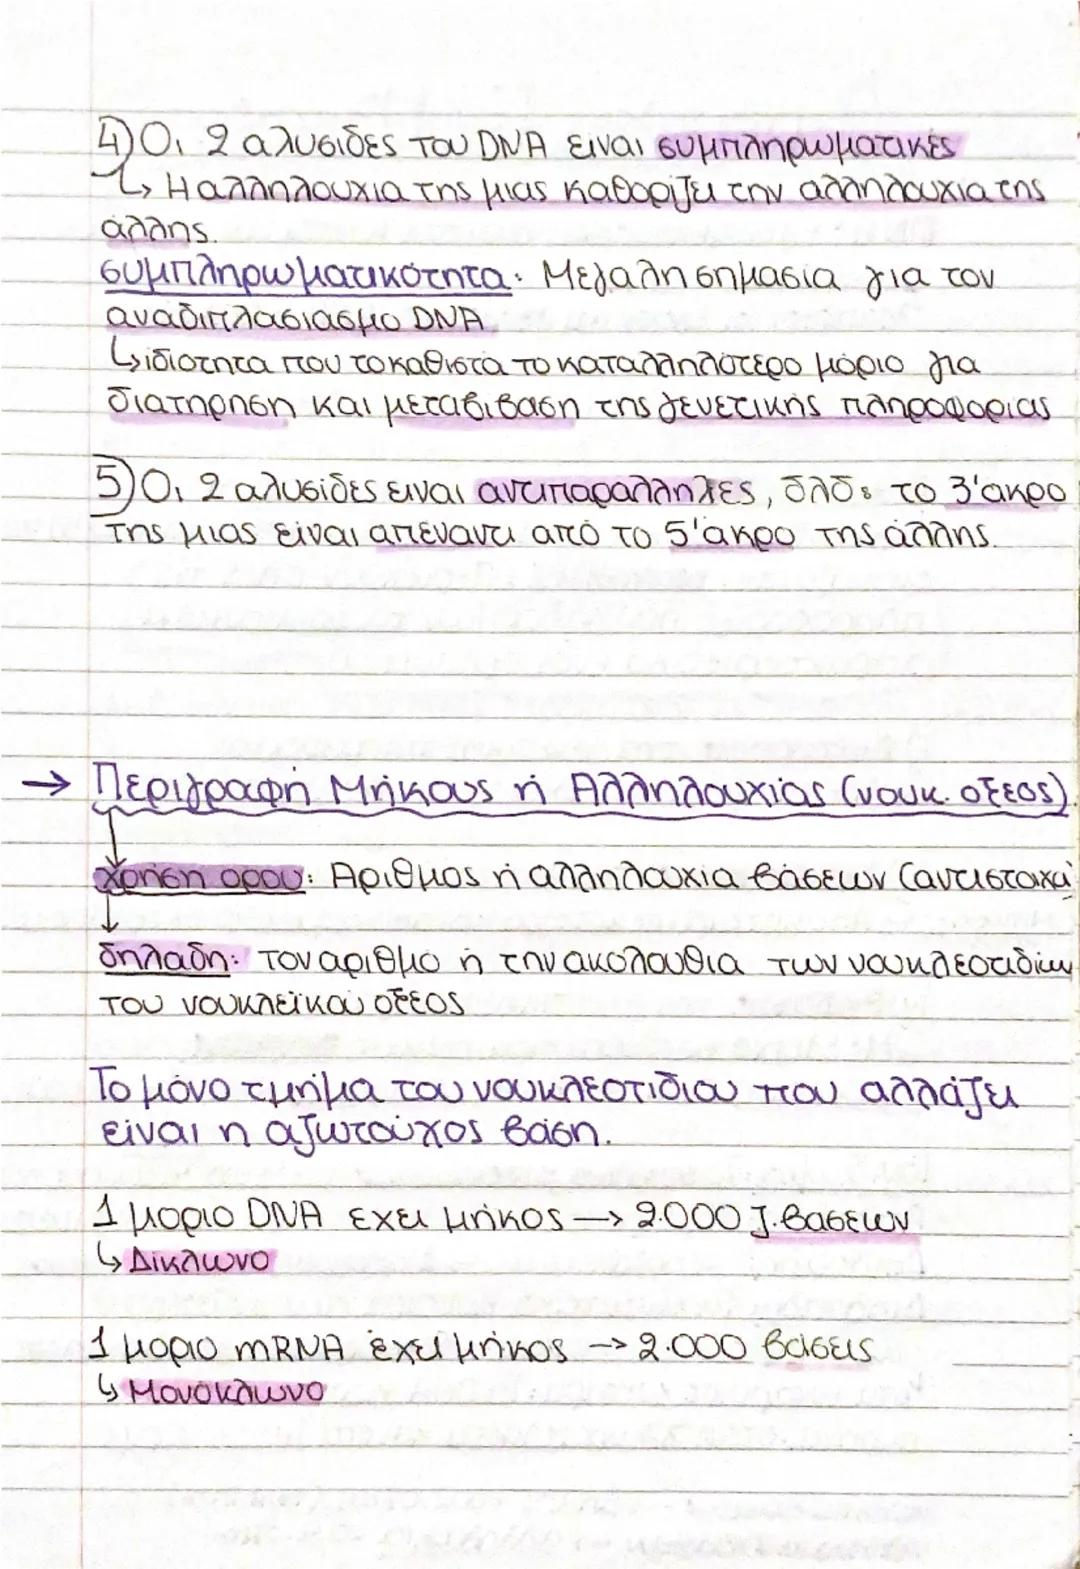 4) Οι 2 αλυσιδες του DNA ειναι συμπληρωματικές
↳ Η αλληλουχια της μιας καθορίζει την αλληλουχια της
άλλης.
συμπληρωματικότητα: Μεγαλη σημασία για τον
αναδιπλασιασμο DNA
↳ ιδιοτητα που το καθιστά το καταλληλότερο μόριο για
διατηρηση και μεταβιβαση της γενετικής πληροφορίας
5) Οι 2 αλυσίδες ειναι αντιπαραλληλες, δλδ: το 3' ακρο
της μιας είναι απέναντι από το 5' άκρο της άλλης.
→ Περιγραφή Μήκους ή Αλληλουχίας (νουκ. οξεος).
χρήση ορου: Αριθμος ή αλληλουχια βάσεων (αντιστοιχα)
δηλαδη: τον αριθμο ή την ακολουθια των νουκλεοτιδίων
του νουκλεϊκου οξέος
Το μόνο τμήμα του νουκλεοτιδιου που αλλάζει
είναι η αζωτούχος βάση.
1 μοριο DNA εχει μήκος → 2.000 ζ. βασεων
↳ Δίκλωνο
1 μοριο mRNA έχει μήκος → 2.000 βάσεις
↳ Μονόκλωνο